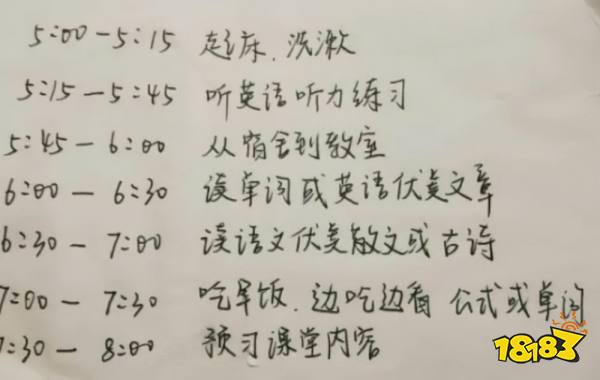 5:00-5:15 起床、洗漱
5:15-5:45 听英语听力练习
5:45-6:00 从宿舍到教室
6:00-6:30 读单词或英语优美文章
6:30-7:00 读语文优美散文或古诗
7:00-7:30 吃早饭、边吃边看公式或单词
:30-8:00 预习课堂内容
18183